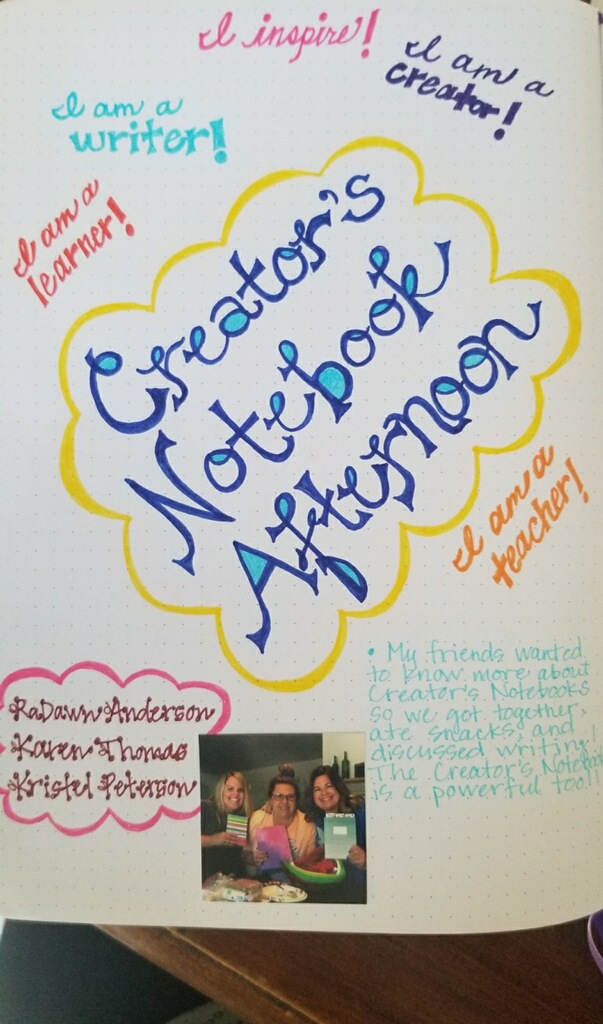 I inspire!
I am a
creator!
I am a
writer!
I am a
learner!
Creator's
Notebook
Afternoon
I am a
teacher!
• My friends wanted
to know more about
Creator's Notebooks
so we got together,
ate snacks, and
discussed writing!
The Creator's Notebook
is a powerful tool!
RaDawn Anderson
Karen Thomas
Kristel Peterson